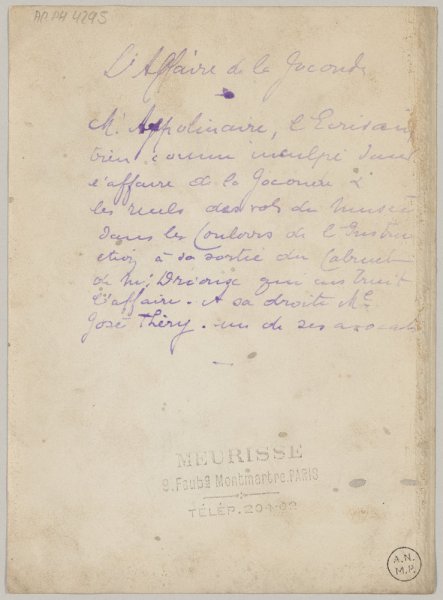 AP PH 4295
L'Affaire de la Joconde
Mr Appolinaire, l'Ecrivain
bien connu inculpé dans
l'affaire de la Joconde &
les vols du Musée
dans les Couloirs de l'Instru
ction à sa sortie du Cabinet
de Mr Drioux qui instruit
l'affaire. A sa droite Me
José Théry. un de ses avocats
MEURISSE
9. Faubg Montmartre. PARIS
TÉLÉP. 204-92
A.N.
M.P.